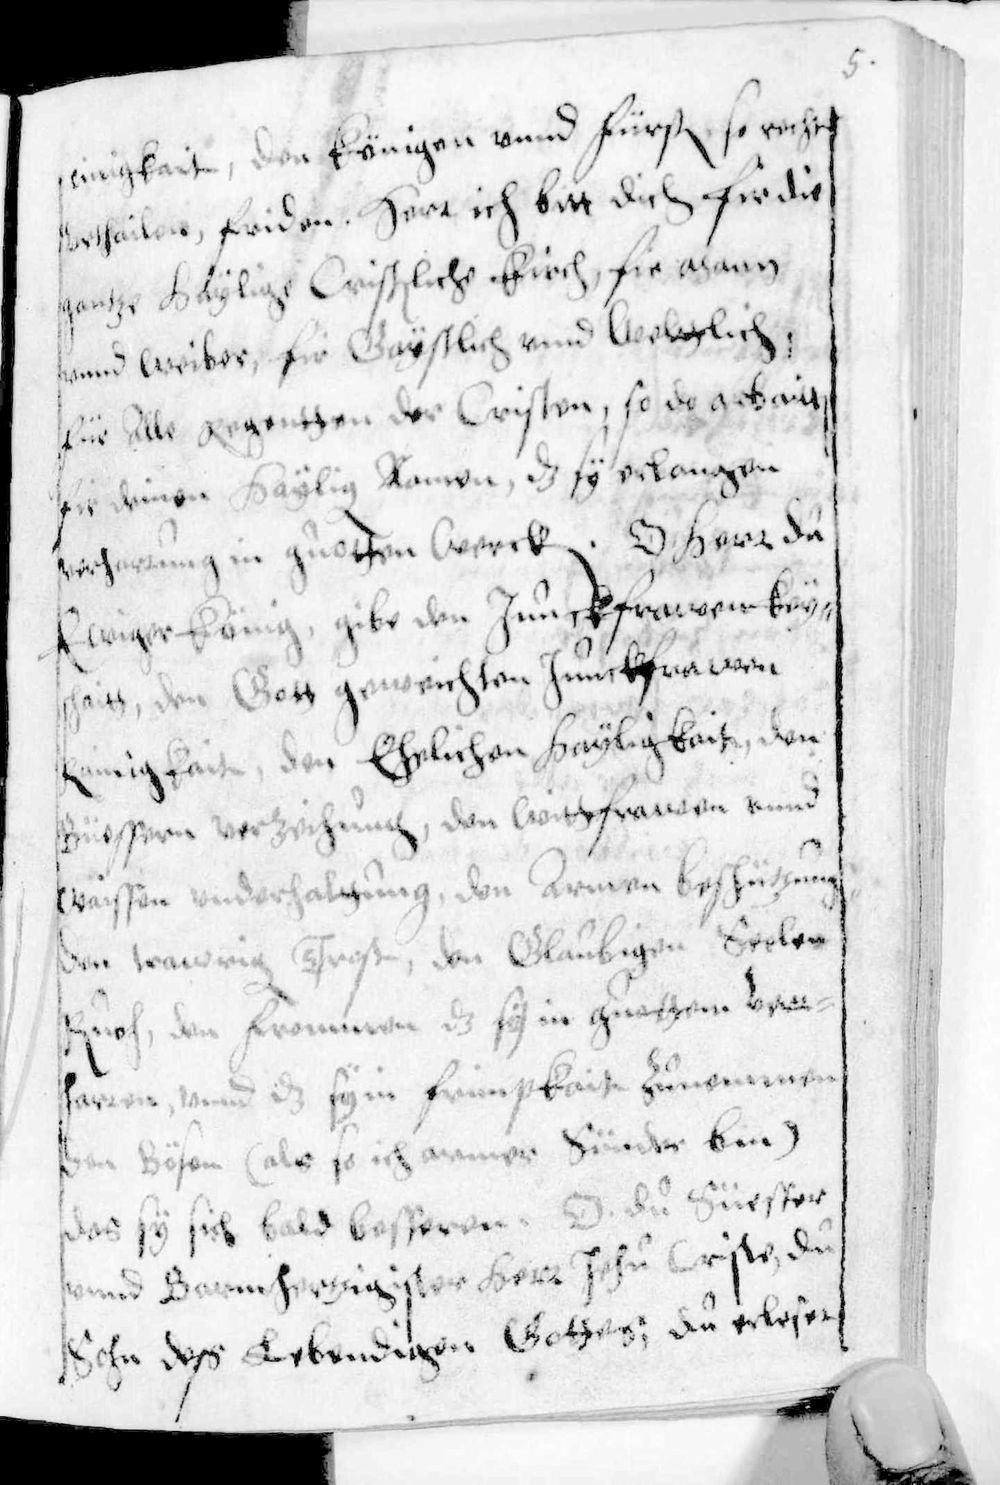 5.
ainigkait, den Künigen vnnd Fürst so recht
vrthailen, friden. Herr ich bitt dich fir die
gantze Haÿlige Cristliche Kirch, fir Mann
vnnd Weiber, fir Gaÿstlich vnnd Weltlich,
für Alle Regenten der Cristen, so do arbaitt
fir deinen Haÿlig Namen, dz sÿ erlangen
verharrung in guotten Werck. O Herr du
Ewiger König, gibe den Junckfrawen Keÿ„
schaitt, den Gott geweichten Junckfrawen
Rainigkait, den Ehelichen Haÿligkait, den
Büessern verzeihung, den Wittfrawen vnnd
Waissen vnderhaltung, den Armen beschützung
den trawrig Trost, den Glaubigen Seelen
Ruoh, den Frommen dz sÿ in guettem ver„
harren, vnnd dz sÿ in frümpkait zunemmen
den Bösen (als so ich armer Sünder bin)
das sÿ sich bald besseren. O du Süesser
vnnd Barmhertzigister Herr Jesu Criste, du
Sohn dess Lebendigen Gottes, du erleser